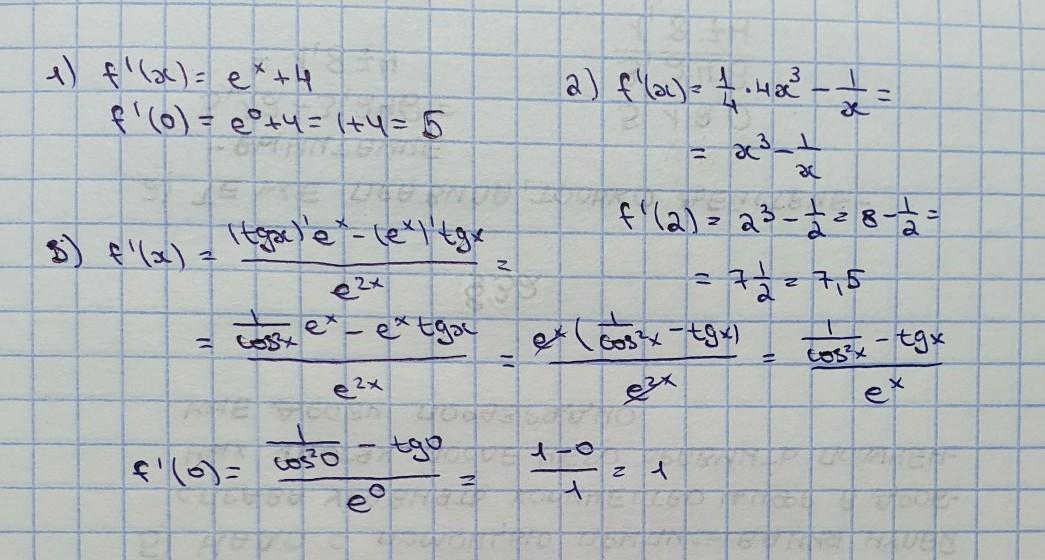 1) f'(x) = e^x + 4
f'(0) = e^0 + 4 = 1 + 4 = 5
2) f'(x) = 1/4 · 4x^3 - 1/x =
= x^3 - 1/x
f'(2) = 2^3 - 1/2 = 8 - 1/2 =
= 7 1/2 = 7,5
3) f'(x) = ((tgx)' e^x - (e^x)' tgx)/(e^(2x)) =
= (1/(cos^2x) e^x - e^x tgx)/(e^(2x)) = (e^x (1/(cos^2x) - tgx))/(e^(2x)) = (1/(cos^2x) - tgx)/(e^x)
f'(0) = (1/(cos^2 0) - tg0)/(e^0) = (1-0)/1 = 1